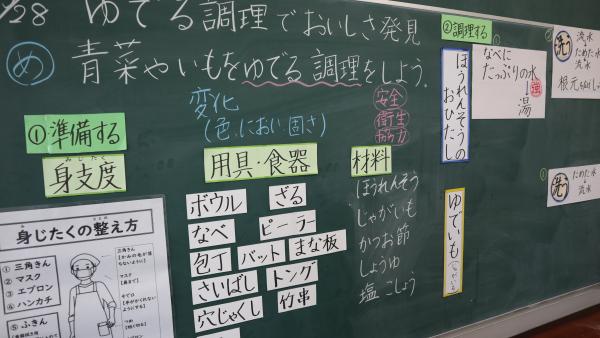 /28 ゆでる調理でおいしさ発見
め 青菜やいもをゆでる調理をしよう。
変化
(色、におい、固さ)
安全
衛生
協力
①準備する
身支度
みじたく
身じたくの整え方
① 三角きん
② マスク
③ エプロン
④ ハンカチ
⑤ ふきん
三角きん
マスク
用具・食器
ボウル
ざる
なべ
ピーラー
包丁
バット
まな板
さいばし
トング
穴じゃくし
竹串
材料
ほうれんそう
じゃがいも
かつお節
しょうゆ
塩 こしょう
②調理する
ほうれんそうの
おひたし
なべに
たっぷりの水
↓ 強
湯
洗
流水
ためた水
流水
根元
ゆでいも
洗
ためた水
流水